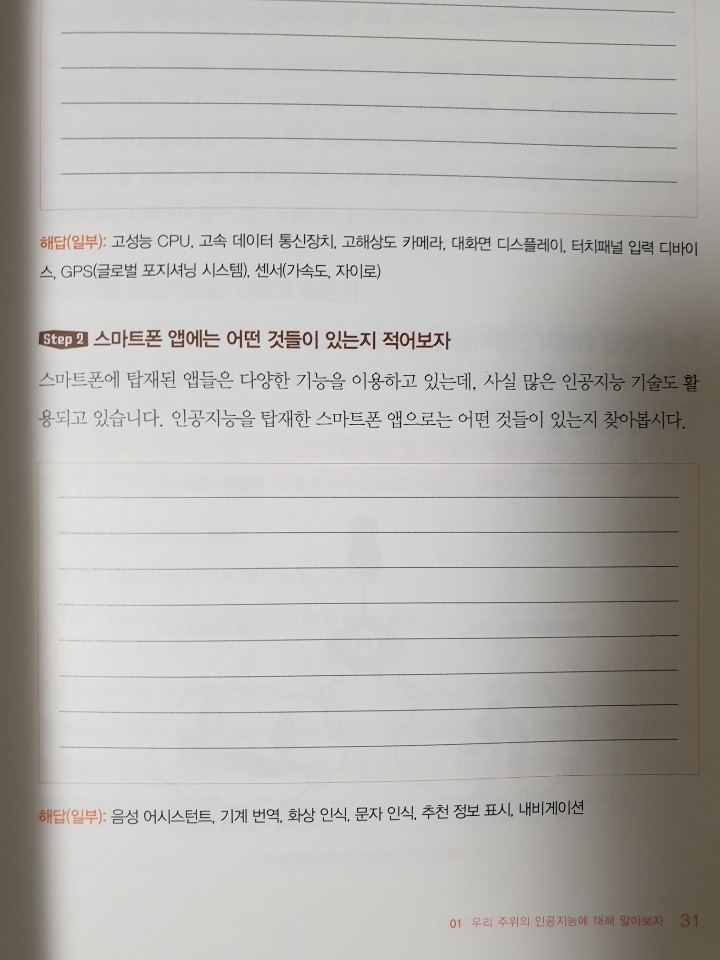 해답(일부): 고성능 CPU, 고속 데이터 통신장치, 고해상도 카메라, 대화면 디스플레이, 터치패널 입력 디바이
스, GPS(글로벌 포지셔닝 시스템), 센서(가속도, 자이로)
Step 2 스마트폰 앱에는 어떤 것들이 있는지 적어보자
스마트폰에 탑재된 앱들은 다양한 기능을 이용하고 있는데, 사실 많은 인공지능 기술도 활
용되고 있습니다. 인공지능을 탑재한 스마트폰 앱으로는 어떤 것들이 있는지 찾아봅시다.
해답(일부): 음성 어시스턴트, 기계 번역, 화상 인식, 문자 인식, 추천 정보 표시, 내비게이션
01 우리 주위의 인공지능에 대해 알아보자 31